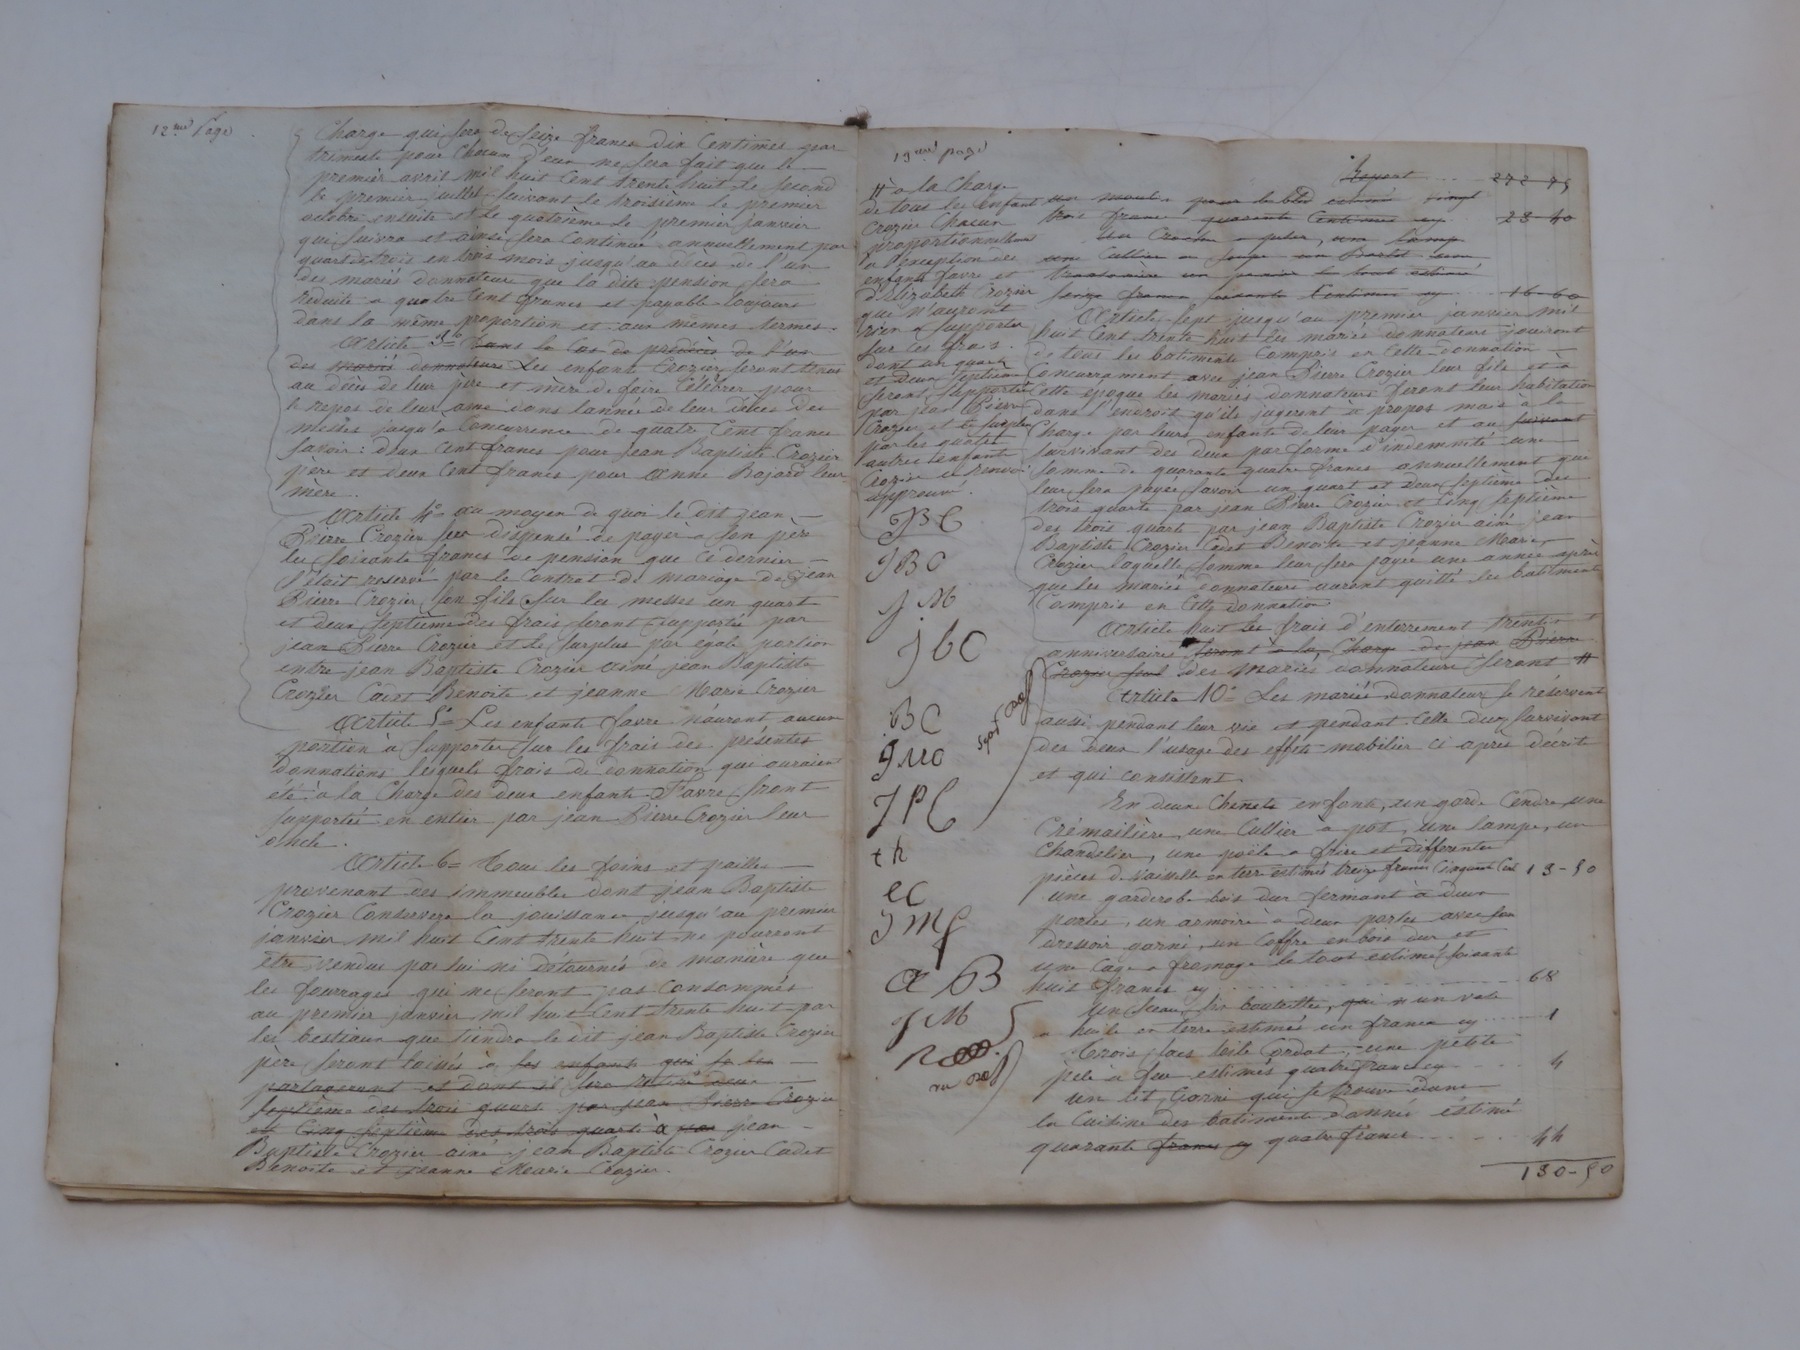 12me Page
Charge qui sera de seize francs dix Centimes par
trimestre pour Chacun d'eux ne sera fait que le
premier avril mil huit Cent trente huit le second
le premier juillet suivant le troisième le premier
octobre ensuite et le quatrième le premier janvier
qui suivra et ainsi sera Continué annuellement par
quart de trois en trois mois jusqu'au décès de l'un
des mariés donnateurs que la dite pension sera
réduite a quatre Cent francs et payable toujours
dans la même proportion et aux mêmes termes.
Article 3e Dans le Cas de prédécès de l'un
des mariés donnateurs Les enfants Crozier seront tenus
au décès de leur père et mère de faire Célébrer pour
le repos de leur ame dans l'année de leur décès des
messes jusqu'a Concurrence de quatre Cent francs
savoir: deux Cent francs pour jean Baptiste Crozier
père et deux Cent francs pour anne Bajard leur
mère.
Article 4e au moyen de quoi le dit jean
Pierre Crozier sera dispensé de payer a son père
les soixante francs de pension que Ce dernier
s'était reservé par le Contrat de mariage de jean
Pierre Crozier son fils sur les messes un quart
et deux septième des frais seront supportés par
jean Pierre Crozier et le surplus par égale portion
entre jean Baptiste Crozier ainé jean Baptiste
Crozier Cadet Benoite et jeanne Marie Crozier
Article 5e Les enfants favre n'auront aucune
portion à supporter sur les frais des présentes
donnations lesquels frais de donnation qui auraient
été à la Charge des deux enfants Favre seront
supportés en entier par jean Pierre Crozier leur
oncle.
Article 6e Tous les foins et pailles
provenant des immeubles dont jean Baptiste
Crozier Conservera la jouissance jusqu'au premier
janvier mil huit Cent trente huit ne pourront
être vendus par lui ni détournés de manière que
les fourrages qui ne seront pas Consommés
au premier janvier mil huit Cent trente huit par
les bestiaux que tiendra le dit jean Baptiste Crozier
père seront laissés à les enfants qui se les
partageront et dont il sera retiré deux
septième des trois quart par jean Pierre Crozier
et Cinq septième des trois quarts à par jean
Baptiste Crozier ainé jean Baptiste Crozier Cadet
Benoite et jeanne Marie Crozier.
19me page
# à la Charge
de tous les Enfant
Crozier Chacun
proportionnellement
a l'exception des
enfants favre et
d'Elizabeth Crozier
que n'auront
rien a supporter
sur Ces frais.
dont un quart
et deux septième
seront supportés
par jean Pierre
Crozier et le surplus
par les quatre
autres enfants
Crozier le renvoi
approuvé.
JBC
JBC
JM
jbC
BC
JMC
JPC
th
eC
JMf
A B
JM
Report ... 272 75
pour le bled estimé vingt
trois francs quarante Centimes cy 23 40
une
une Cullier
le tout estimé
seize francs soixante Centimes cy 16-60
Article sept jusqu'au premier janvier mil
huit Cent trente huit les mariés donnateurs jouiront
de tous les batiments Compris en Cette donnation
Concurrament avec jean Pierre Crozier leur fils et à
Cette époque les mariés donnateurs feront leur habitation
dans l'endroit qu'ils jugeront à propos mais à la
Charge par leurs enfants de leur payer et au suivant
survivant des deux par forme d'indemnité une
somme de quarante quatre francs annuellement que
leur sera payée savoir un quart et deux septième des
trois quarts par jean Pierre Crozier et Cinq septième
des trois quart par jean Baptiste Crozier ainé jean
Baptiste Crozier Cadet Benoite et jeanne Marie
Crozier laquelle somme leur sera payée une année après
que les mariés donnateurs auront quitté les batiments
Compris en Cette donnation
Article huit les frais d'enterrement
anniversaire seront à la Charge de jean Pierre
Crozier seul des mariés donnateurs seront #
Article 10e Les mariés donnateurs se réservent
aussi pendant leur vie et pendant Celle du survivant
des deux l'usage des effets mobilier Ci après décrit
et qui consistent
En deux Chenets en fonte, un garde Cendre une
Crémailière, une Cullier à pot, une lampe, un
Chandelier, une poële a frire et differentes
pièces de vaiselle en terre estimés treize francs Cinquante Cent 13-50
une garderobe bois dur fermant à deux
portes, un armoire à deux portes avec son
dressoir garni, un Coffre en bois dur et
une Cage a fromage le tout estimé soixante
huit francs cy 68
un seau, six bouteilles, qui n un vase
a huile en terre estimés un franc cy 1
Trois sacs toile Cordat, une petite
pele à feu estimés quatre francs cy 4
un lit garni qui se trouve dans
la Cuisine des batiments donnés éstimé
quarante francs cy quatre francs 44
130-50